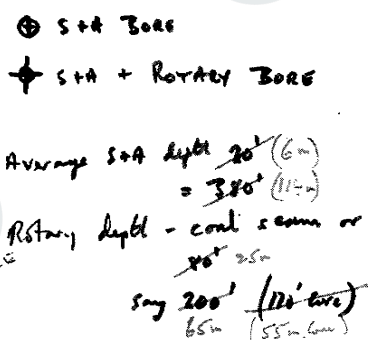 S+A BORE
S+A + ROTARY BORE
Average S+A depth 20' (6m)
= 380' (115m)
Rotary depth - coal seam or
80' 25m
Say 200' (120' core)
65m (55m core)